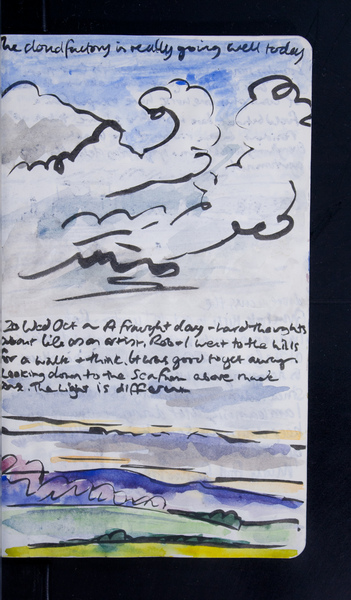 The cloud factory is really going well today
20 Wed Oct ~ A fraught day - hard thoughts
about life as an artist, Rob + I went to the hills
for a walk + think. It was good to get away
Looking down to the Sea from above
The light is different